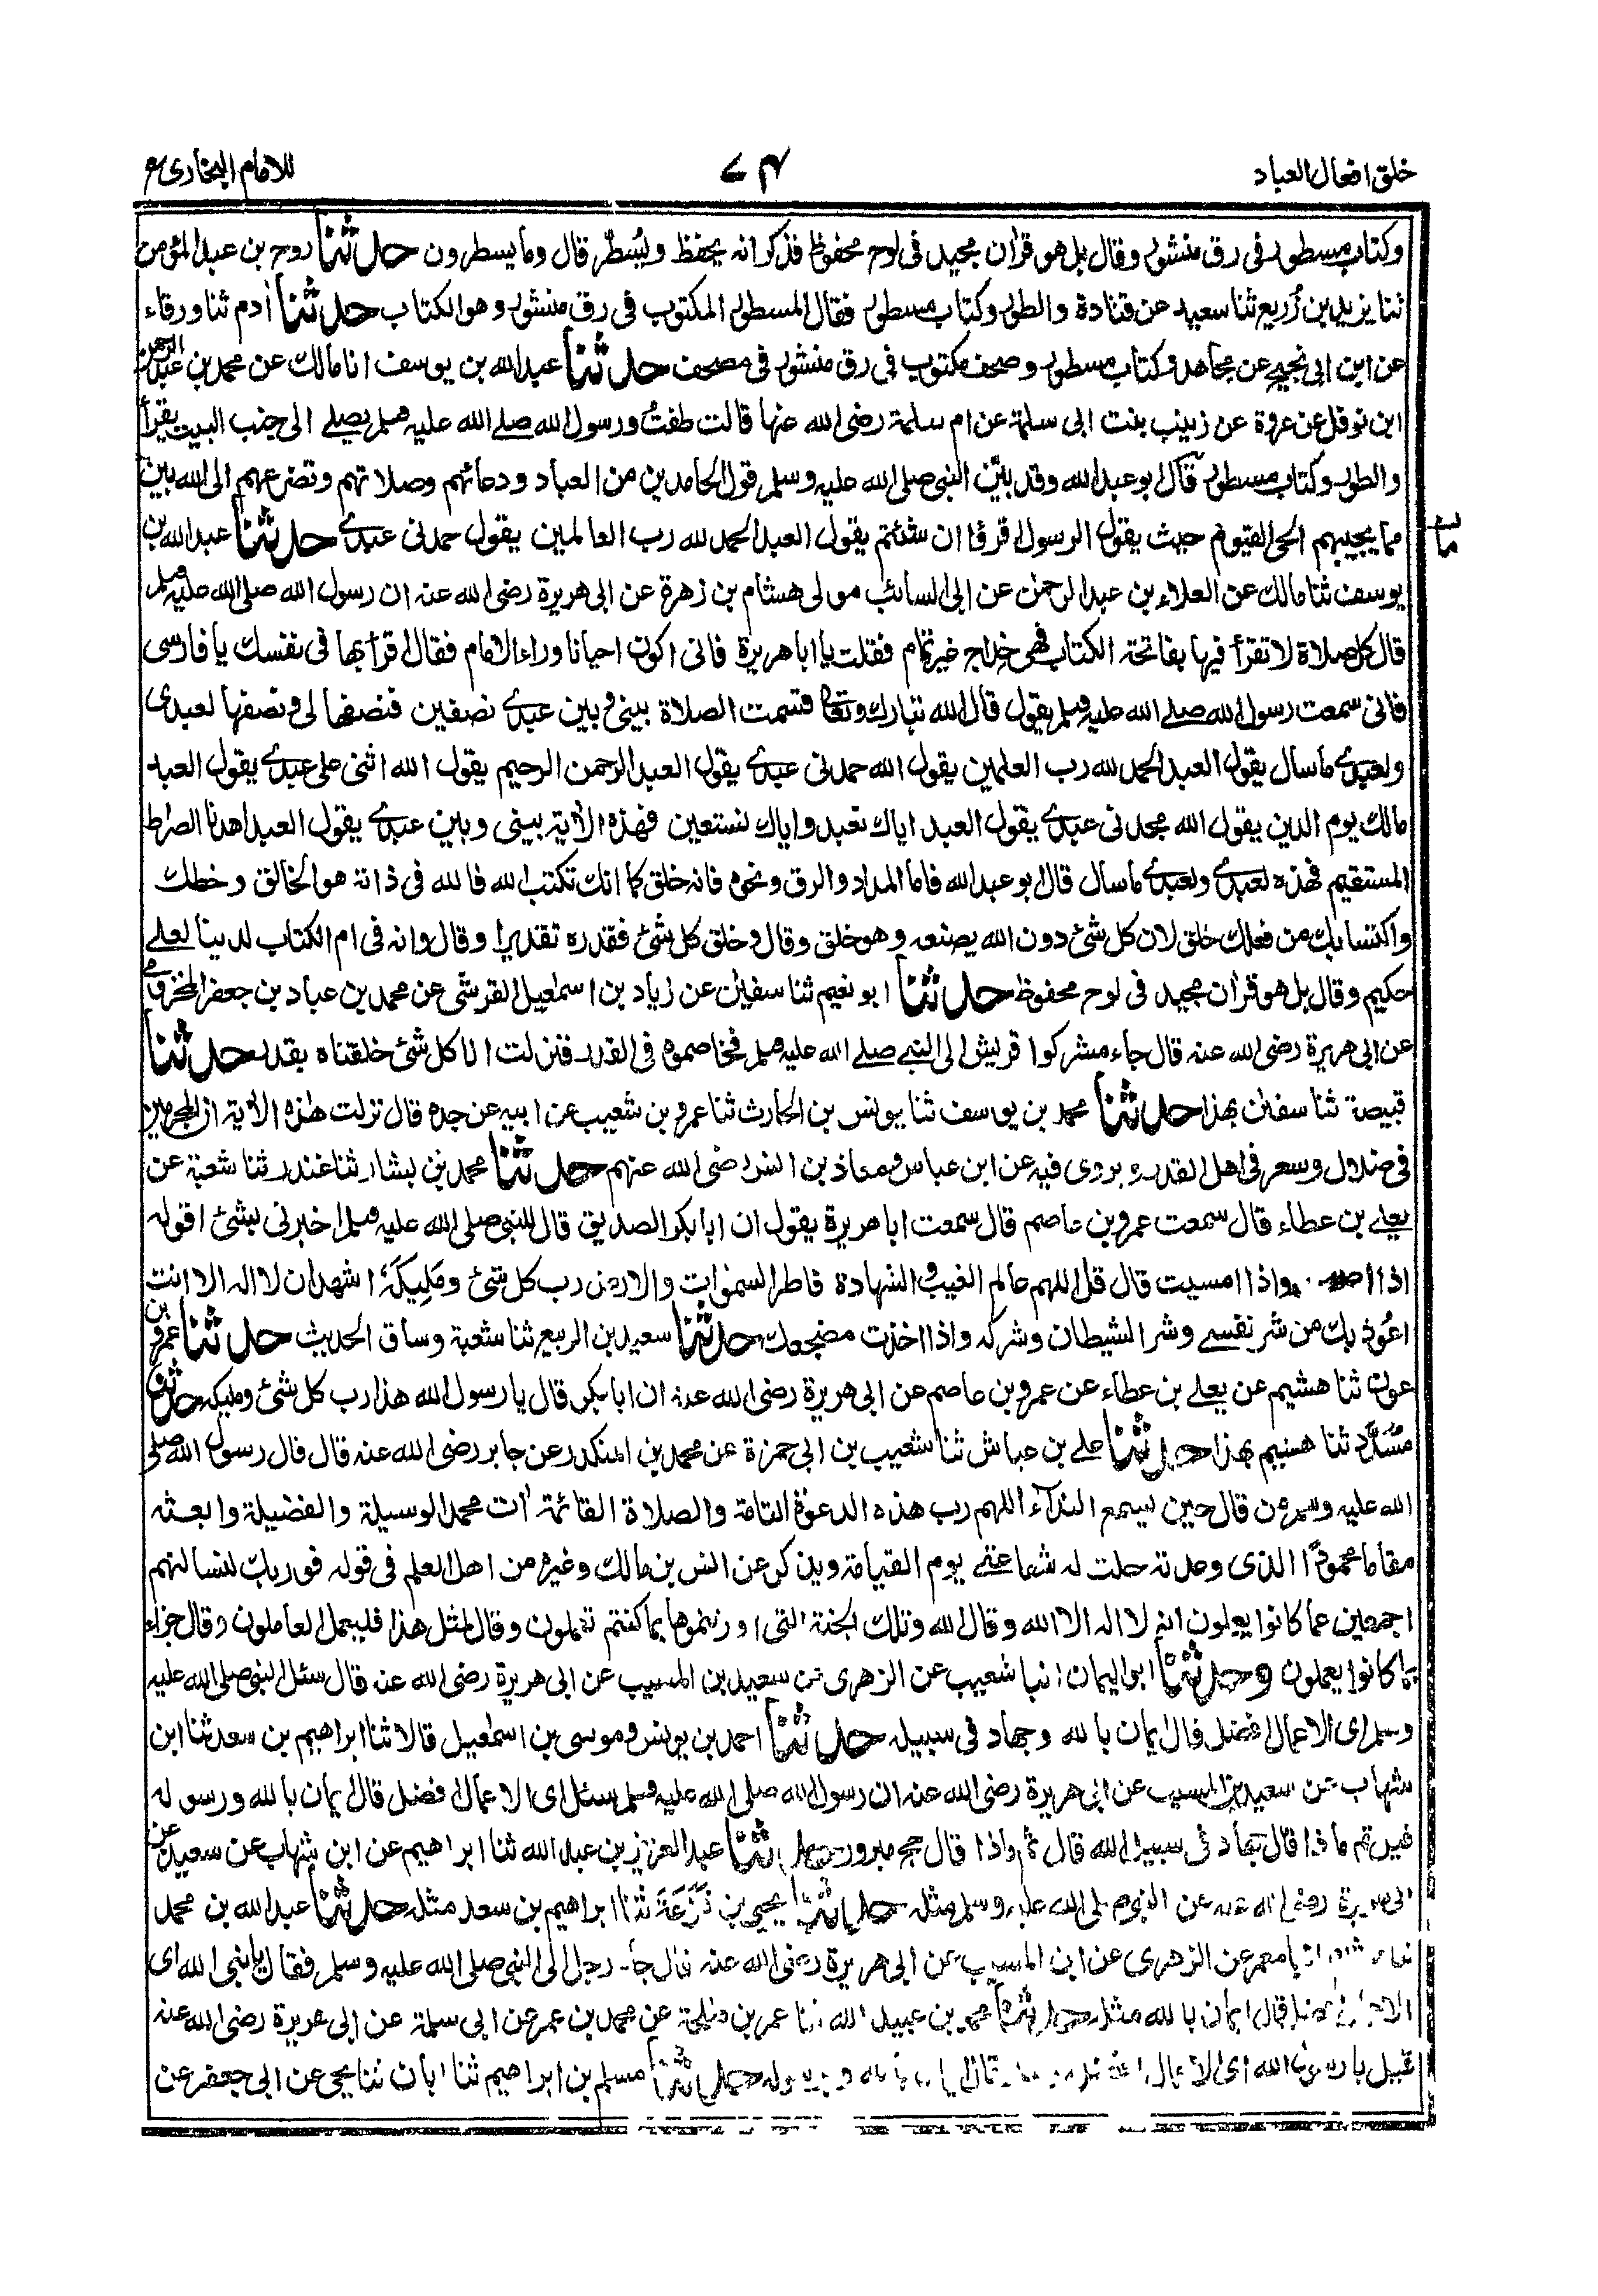 خلق افعال العباد
٧٤
للامام البخاری
وكتاب مسطور فى رق منشور وقال بل هو قرأن مجيد فى لوح محفوظ فذكر انه يحفظ ويُسطّر قال وما يسطرون حدثنا روح بن عبد المؤمن
ثنا يزيد بن زُريع ثنا سعيد عن قتادة والطور وكتاب مسطور فقال المسطور المكتوب فى رق منشور وهو الكتاب حدثنا أدم ثنا ورقاء
عن ابن ابى نجيح عن مجاهد وكتاب مسطور وصحف مكتوب فى رق منشور فى مصحف حدثنا عبد الله بن يوسف انا مالك عن محمد بن عبد الرحمن
ابن نوفل عن عروة عن زينب بنت ابى سلمة عن ام سلمة رضى الله عنها قالت طفت ورسول الله صلے الله عليه وسلم يصلے الى جنب البيت يقرأ
والطور وكتاب مسطور قال ابو عبد الله وقد بيّن النبى صلى الله عليه وسلم قول الحامدين من العباد ودعائهم وصلاتهم وتضرعهم الى الله بين
ما يجيبهم الحى القيوم حيث يقول الرسول اقرؤا ان شئتم يقول العبد الحمد لله رب العالمين يقول حمدنى عبدے حدثنا عبد الله بن
يوسف ثنا مالك عن العلاء بن عبد الرحمن عن ابى السائب مولى هشام بن زهرة عن ابى هريرة رضى الله عنه ان رسول الله صلى الله عليه وسلم
قال كل صلاة لا تقرأ فيها بفاتحة الكتاب فهى خداج غير تمام فقلت يا ابا هريرة فانى اكون احيانا وراء الامام فقال اقرأ بها فى نفسك يا فارسى
فانى سمعت رسول الله صلے الله عليه وسلم يقول قال الله تبارك وتعالى قسمت الصلاة بينى وبين عبدے نصفين فنصفها لى ونصفها لعبدى
ولعبدے ما سأل يقول العبد الحمد لله رب العلمين يقول الله حمدنى عبدے يقول العبد الرحمن الرحيم يقول الله اثنى على عبدے يقول العبد
مالك يوم الدين يقول الله مجدنى عبدے يقول العبد اياك نعبد واياك نستعين فهذه الأية بينى وبين عبدے يقول العبد اهدنا الصراط
المستقيم فهذه لعبدے ولعبدے ما سأل قال ابو عبد الله فاما المداد والرق ونحوه فانه خلق كما انك تكتب الله فالله فى ذاته هو الخالق وخطك
واكتسابك من فعلك خلق لان كل شئ دون الله يصنعه وهو خلق وقال وخلق كل شئ فقدره تقديرا وقال وانه فى ام الكتاب لدينا لعلے
حكيم وقال بل هو قرأن مجيد فى لوح محفوظ حدثنا ابو نعيم ثنا سفين عن زياد بن اسمعيل القرشى عن محمد بن عباد بن جعفر المخزومى
عن ابى هريرة رضى الله عنه قال جاء مشركوا قريش الى النبے صلے الله عليه وسلم فخاصموه فى القدر فنزلت انا كل شئ خلقناه بقدر حدثنا
قبيصة ثنا سفين بهذا حدثنا محمد بن يوسف ثنا يونس بن الحارث ثنا عمرو بن شعيب عن ابيه عن جده قال نزلت هذه الأية ان المجرمين
فى ضلال وسعر فى اهل القدر ويروى فيه عن ابن عباس ومعاذ بن انس رضى الله عنهم حدثنا محمد بن بشار ثنا غندر ثنا شعبة عن
يعلے بن عطاء قال سمعت عمرو بن عاصم قال سمعت ابا هريرة يقول ان ابا بكر الصديق قال للنبى صلى الله عليه وسلم اخبرنى بشئ اقوله
اذا واذا امسيت قال قل اللهم عالم الغيب والشهادة فاطر السموات والارض رب كل شئ ومَلِيكَه اشهد ان لا اله الا انت
اعوذ بك من شر نفسے وشر الشيطان وشركه واذا اخذت مضجعك حدثنا سعيد بن الربيع ثنا شعبة وساق الحديث حدثنا عمرو بن
عون ثنا هشيم عن يعلے بن عطاء عن عمرو بن عاصم عن ابى هريرة رضى الله عنه ان ابا بكر قال يا رسول الله هذا رب كل شئ ومليكه حدثنا
مُسَدَّد ثنا هشيم بهذا حدثنا علے بن عياش ثنا شعيب بن ابى حمزة عن محمد بن المنكدر عن جابر رضى الله عنه قال قال رسول الله صلى
الله عليه وسلم من قال حين يسمع الندآء اللهم رب هذه الدعوة التامة والصلاة القائمة أت محمدا الوسيلة والفضيلة وابعثه
مقاما محمودًا الذى وعدته حلت له شفاعتے يوم القيامة ويذكر عن انس بن مالك وغيره من اهل العلم فى قوله فوربك لنسالنهم
اجمعين عما كانوا يعلون انه لا اله الا الله وقال الله وتلك الجنة التى اورثتموها بما كنتم تعملون وقال لمثل هذا فليعمل العاملون وقال جزاء
بما كانوا يعملون وحدثنا ابو اليمان انبا شعيب عن الزهرى عن سعيد بن المسيب عن ابى هريرة رضى الله عنه قال سئل النبى صلى الله عليه
وسلم اى الاعمال افضل قال ايمان بالله وجهاد فى سبيله حدثنا احمد بن يونس وموسى بن اسمعيل قالا ثنا ابراهيم بن سعد ثنا ابن
شهاب عن سعيد بن المسيب عن ابى هريرة رضى الله عنه ان رسول الله صلى الله عليه وسلم سئل اى الاعمال افضل قال ايمان بالله ورسوله
قيل ثم ماذا قال جهاد فى سبيل الله قال ثم ماذا قال حج مبرور حدثنا عبد العزيز بن عبد الله ثنا ابراهيم عن ابن شهاب عن سعيد عن
ابى هريرة رضى الله عنه عن النبى صلى الله عليه وسلم مثله حدثنا يحيى بن قَزَعَة ثنا ابراهيم بن سعد مثله حدثنا عبد الله بن محمد
ثنا معمر عن الزهرى عن ابن المسيب عن ابى هريرة رضى الله عنه قال جاء رجل الى النبى صلى الله عليه وسلم فقال يا نبى الله اى
قال ايمان بالله مثله حدثنا محمد بن عبيد الله ثنا عمر بن طلحة عن محمد بن عمر عن ابى سلمة عن ابى هريرة رضى الله عنه
قيل يا رسول الله اى الاعمال حدثنا مسلم بن ابراهيم ثنا ابان ثنا يحيى عن ابى جعفر عن